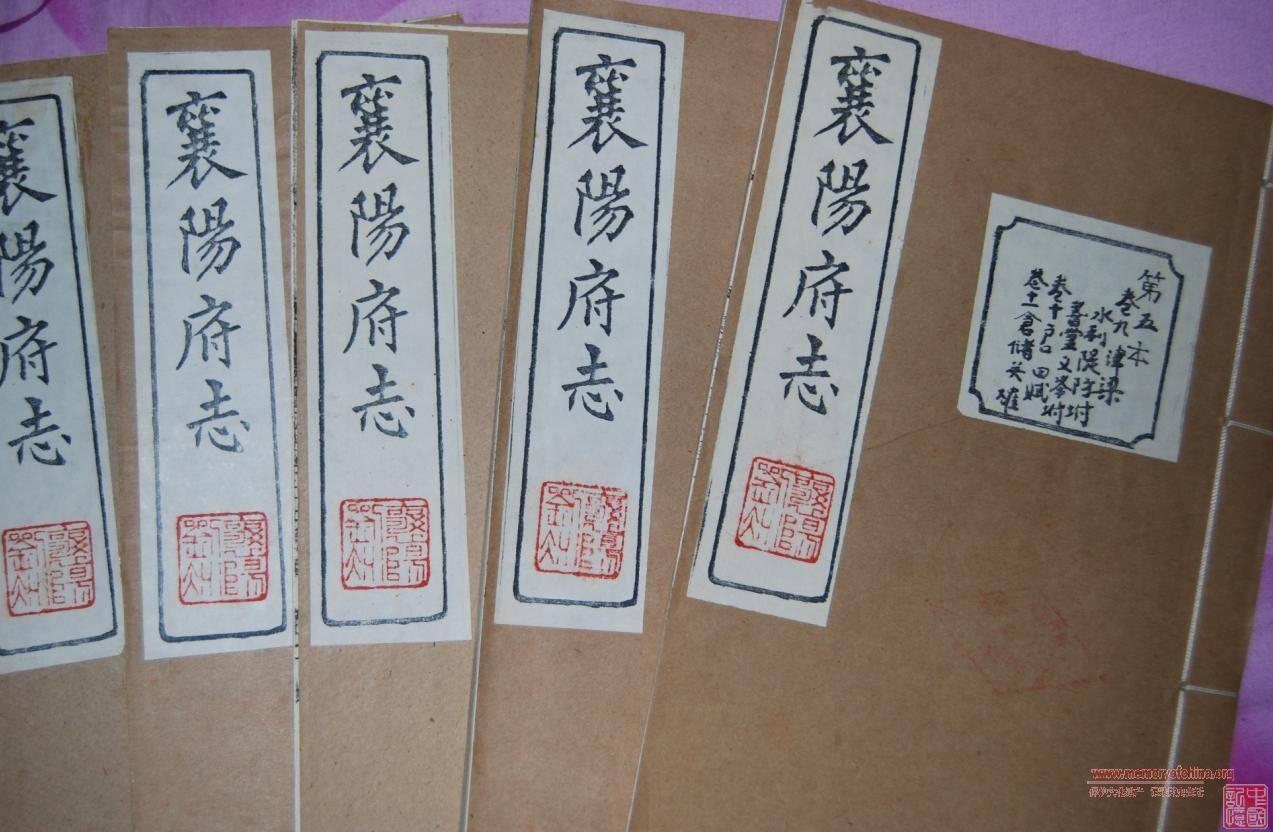 襄陽府志
襄陽府志
襄陽府志
襄陽府志
襄陽府志
第五本
卷九津梁
水利隄防坿
卷十戶口田賦
卷十一倉儲
www.memoryofchina.org
中國記憶